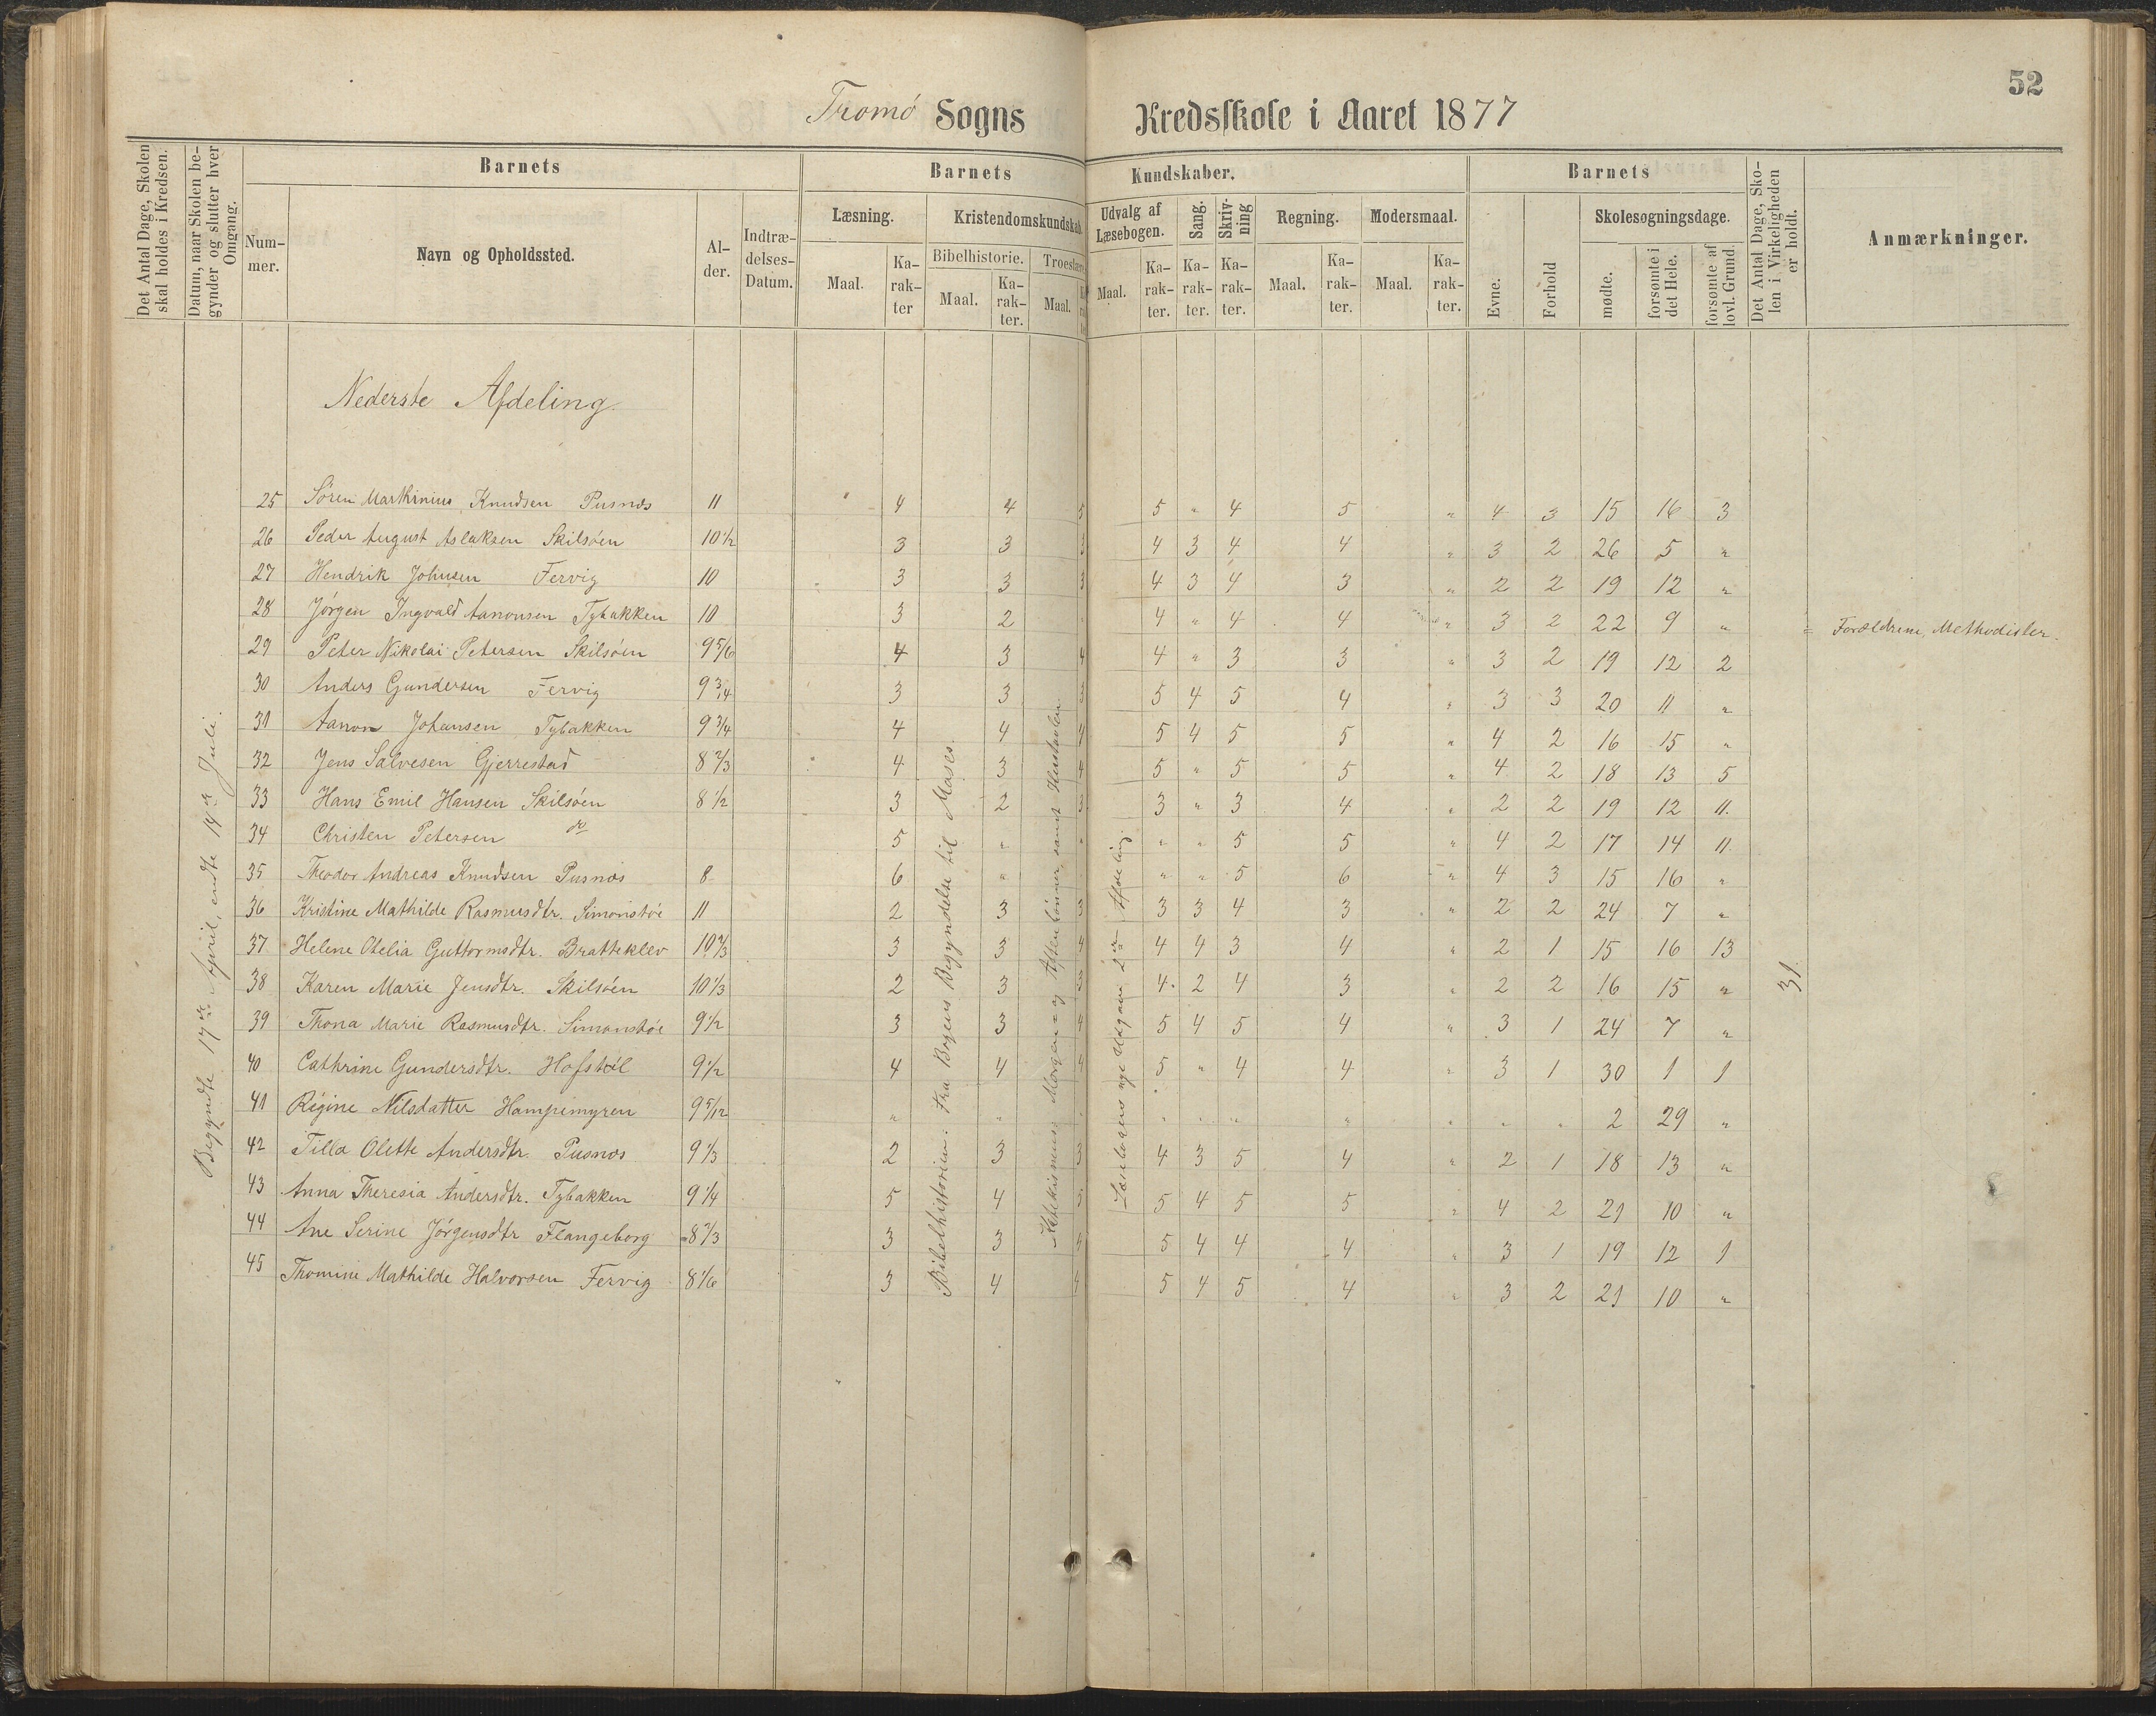 52
Tromø Sogns Kredsskole i Aaret 1877
Det Antal Dage, Skolen skal holdes i Kredsen.
Datum, naar Skolen begynder og slutter hver Omgang.
Barnets
Nummer.
Navn og Opholdssted.
Alder.
Indtrædelses-Datum.
Barnets Kundskaber.
Læsning.
Maal. Karakter
Kristendomskundskab.
Bibelhistorie. Troeslære
Maal. Karakter. Maal.
Udvalg af Læsebogen.
Maal. Karakter.
Sang. Karakter.
Skrivning Karakter.
Regning.
Maal. Karakter.
Modersmaal.
Maal. Karakter.
Barnets
Evne.
Forhold
Skolesøgningsdage.
mødte.
forsømte i det Hele.
forsømte af lovl. Grund
Det Antal Dage, Skolen i Virkeligheden er holdt.
Anmærkninger.
Nederste Afdeling.
25 Sören Marthinius Knudsen Pusnæs 11 4 4 5 5 " 4 5 " 4 3 15 16 3
26 Peder August Aslaksen Skilsöen 10 1/2 3 3 3 4 3 4 4 " 3 2 26 5 "
27 Hendrik Johnsen Fervig 10 3 3 3 4 3 4 3 " 2 2 19 12 "
28 Jörgen Ingvald Aanonsen Tybakken 10 3 2 4 " 4 4 " 3 2 22 9 " = Forældrene, Methodister.
29 Peter Nikolai Petersen Skilsöen 9 5/6 4 3 4 4 " 3 3 " 3 2 19 12 2
30 Anders Gundersen Fervig 9 3/4 3 3 3 5 4 5 4 " 3 3 20 11 "
31 Aanon Johansen Tybakken 9 3/4 4 4 4 5 4 5 5 " 4 2 16 15 "
32 Jens Salvesen Gjerrestad 8 2/3 4 3 4 5 " 5 5 " 4 2 18 13 5
33 Hans Emil Hansen Skilsöen 8 1/2 3 2 3 3 " 3 4 " 2 2 19 12 11.
34 Christen Petersen do 5 " " " " 5 5 " 4 2 17 14 11.
35 Theodor Andreas Knudsen Pusnæs 8 6 " " " 5 6 " 4 3 15 16 "
36 Kristine Mathilde Rasmusdtr. Simonstöe 11 2 3 3 3 3 4 3 " 2 2 24 7 "
37 Helene Otelia Guttormsdtr. Bratteklev 10 2/3 3 3 4 4 4 3 4 " 2 1 15 16 13
38 Karen Marie Jensdtr. Skilsöen 10 1/3 2 3 3 4 2 4 3 " 2 2 16 15 "
39 Thona Marie Rasmusdtr. Simonstöe 9 1/2 3 3 4 5 4 5 4 " 3 1 24 7 "
40 Cathrine Gundersdtr. Hofstöl 9 1/2 4 4 4 5 " 4 4 " 3 1 30 1 1
41 Régine Nilsdatter Hampemyren 9 5/12 " " " " " " " " " 2 29 "
42 Tilla Olette Andersdtr. Pusnæs 9 1/3 2 3 3 4 3 5 4 " 2 1 18 13 "
43 Anna Theresia Andersdtr. Tybakken 9 1/4 5 4 5 5 4 5 5 " 4 2 21 10 "
44 Ane Serine Jörgensdtr Flangeborg 8 2/3 3 3 4 5 4 4 4 " 3 1 19 12 1
45 Thomine Mathilde Halvorsen Fervig 8 1/6 3 4 4 5 4 5 4 " 3 2 21 10 "
Begyndte 17de April, endte 14de Juli.
Bibelhistorien: Fra Bogens Begyndelse til Moses.
Katekismus, Morgen- og Aftenbönner samt Hustavlen.
Læsebogens nye Udgave 2den Afdeling
31.